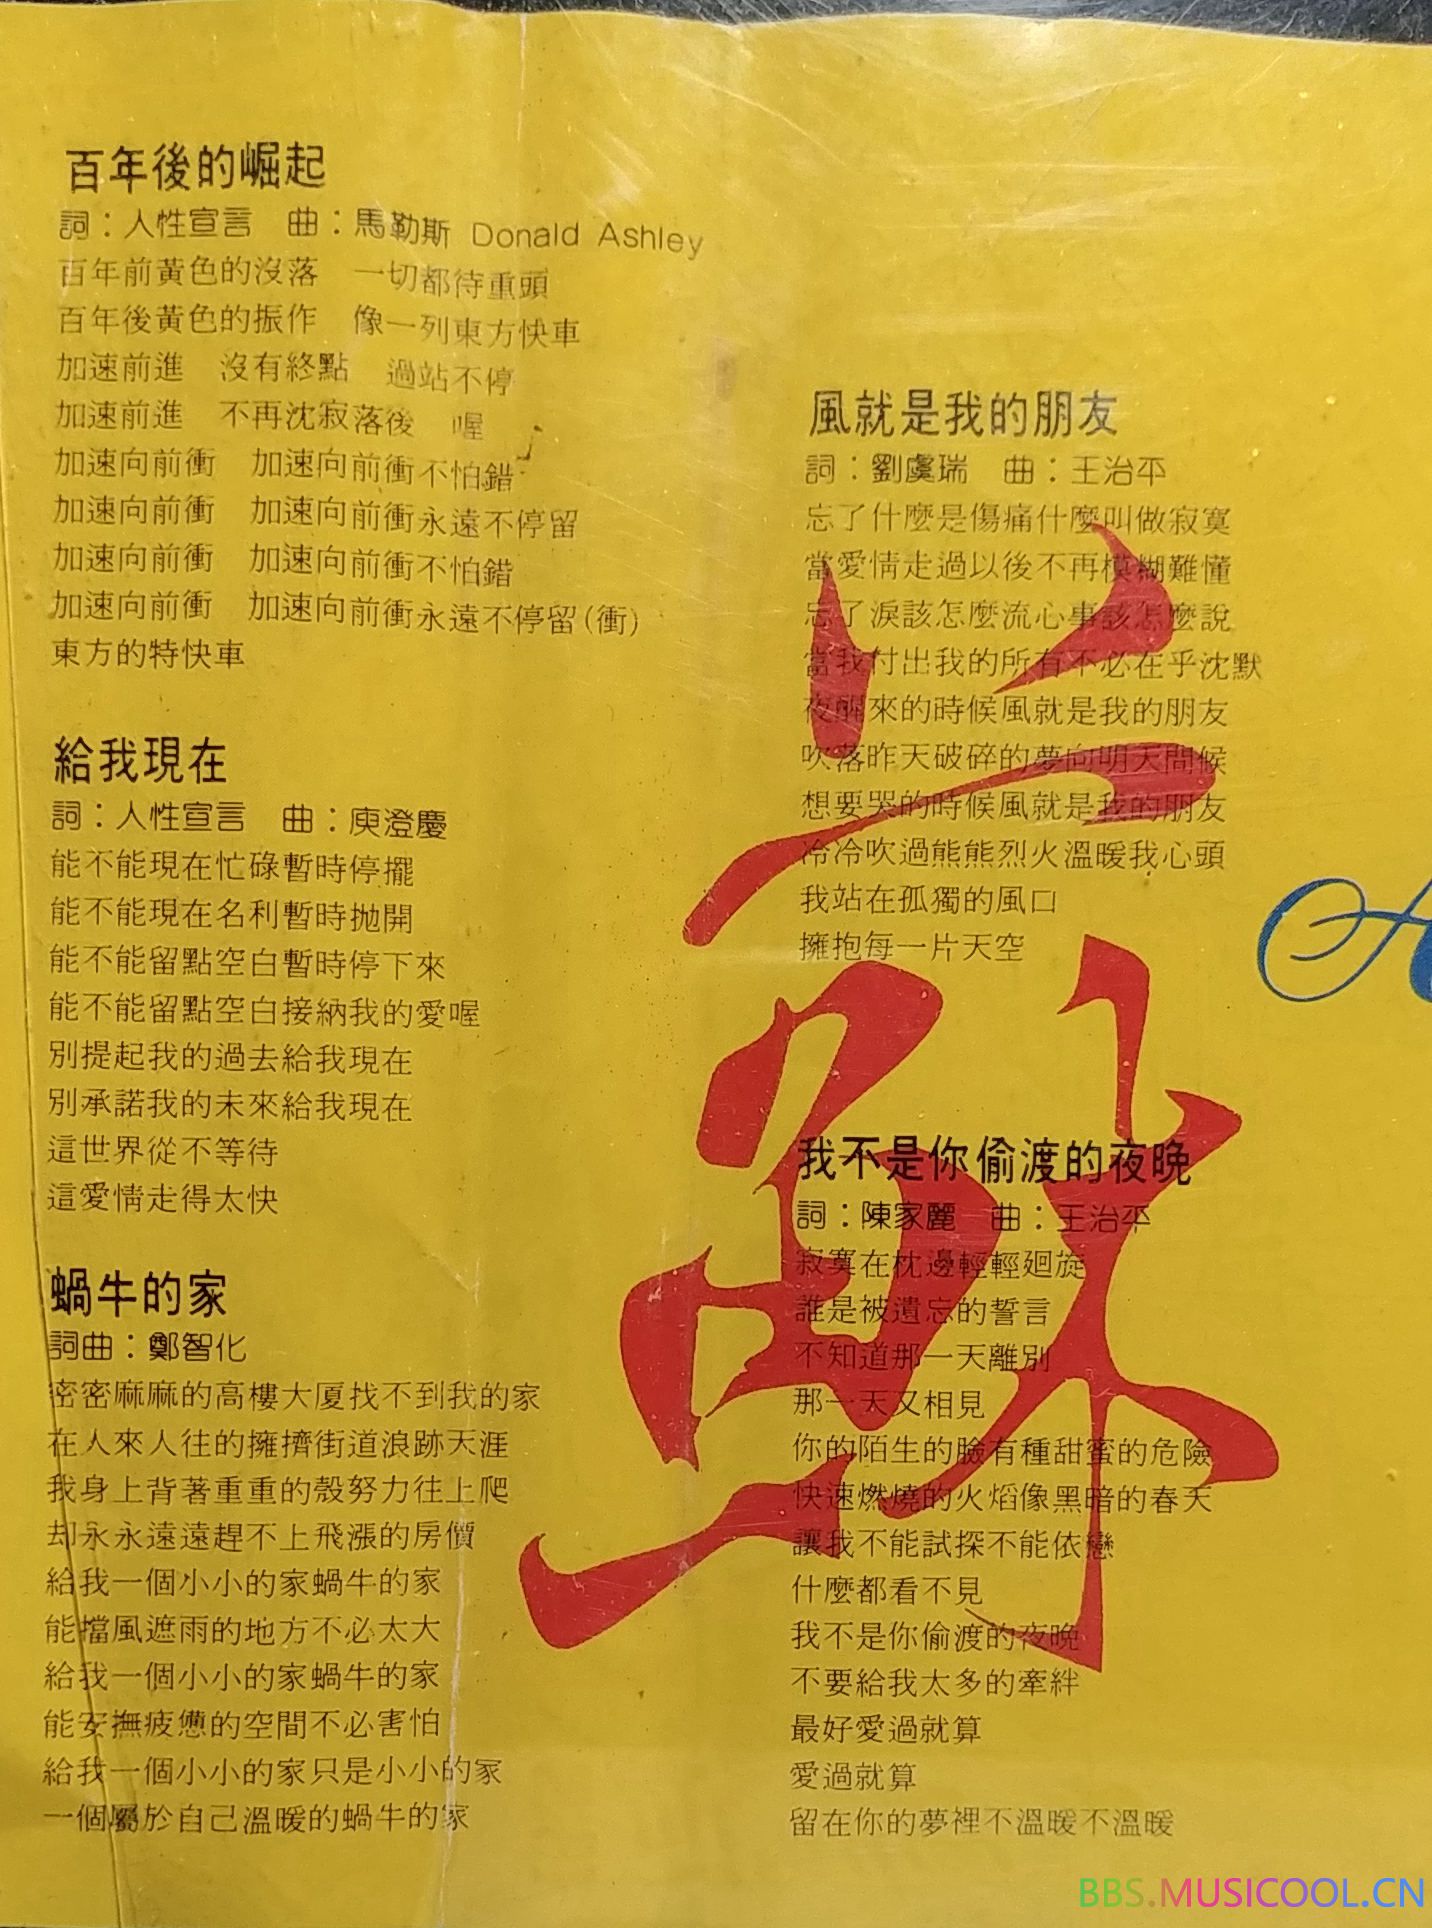 百年後的崛起
詞：人性宣言　曲：馬勒斯 Donald Ashley
百年前黃色的沒落　一切都待重頭
百年後黃色的振作　像一列東方快車
加速前進　沒有終點　過站不停
加速前進　不再沈寂落後　喔
加速向前衝　加速向前衝不怕錯
加速向前衝　加速向前衝永遠不停留
加速向前衝　加速向前衝不怕錯
加速向前衝　加速向前衝永遠不停留(衝)
東方的特快車
給我現在
詞：人性宣言　曲：庾澄慶
能不能現在忙碌暫時停擺
能不能現在名利暫時拋開
能不能留點空白暫時停下來
能不能留點空白接納我的愛喔
別提起我的過去給我現在
別承諾我的未來給我現在
這世界從不等待
這愛情走得太快
蝸牛的家
詞曲：鄭智化
密密麻麻的高樓大厦找不到我的家
在人來人往的擁擠街道浪跡天涯
我身上背著重重的殼努力往上爬
却永永遠遠趕不上飛漲的房價
給我一個小小的家蝸牛的家
能擋風遮雨的地方不必太大
給我一個小小的家蝸牛的家
能安撫疲憊的空間不必害怕
給我一個小小的家只是小小的家
一個屬於自己溫暖的蝸牛的家
風就是我的朋友
詞：劉虞瑞　曲：王治平
忘了什麼是傷痛什麼叫做寂寞
當愛情走過以後不再模糊難懂
忘了淚該怎麼流心事該怎麼說
當我付出我的所有不必在乎沈默
夜醒來的時候風就是我的朋友
吹落昨天破碎的夢向明天問候
想要哭的時候風就是我的朋友
冷冷吹過熊熊烈火溫暖我心頭
我站在孤獨的風口
擁抱每一片天空
我不是你偷渡的夜晚
詞：陳家麗　曲：王治平
寂寞在枕邊輕輕迴旋
誰是被遺忘的誓言
不知道那一天離別
那一天又相見
你的陌生的臉有種甜蜜的危險
快速燃燒的火焰像黑暗的春天
讓我不能試探不能依戀
什麼都看不見
我不是你偷渡的夜晚
不要給我太多的牽絆
最好愛過就算
愛過就算
留在你的夢裡不溫暖不溫暖
BBS.MUSICOOL.CN